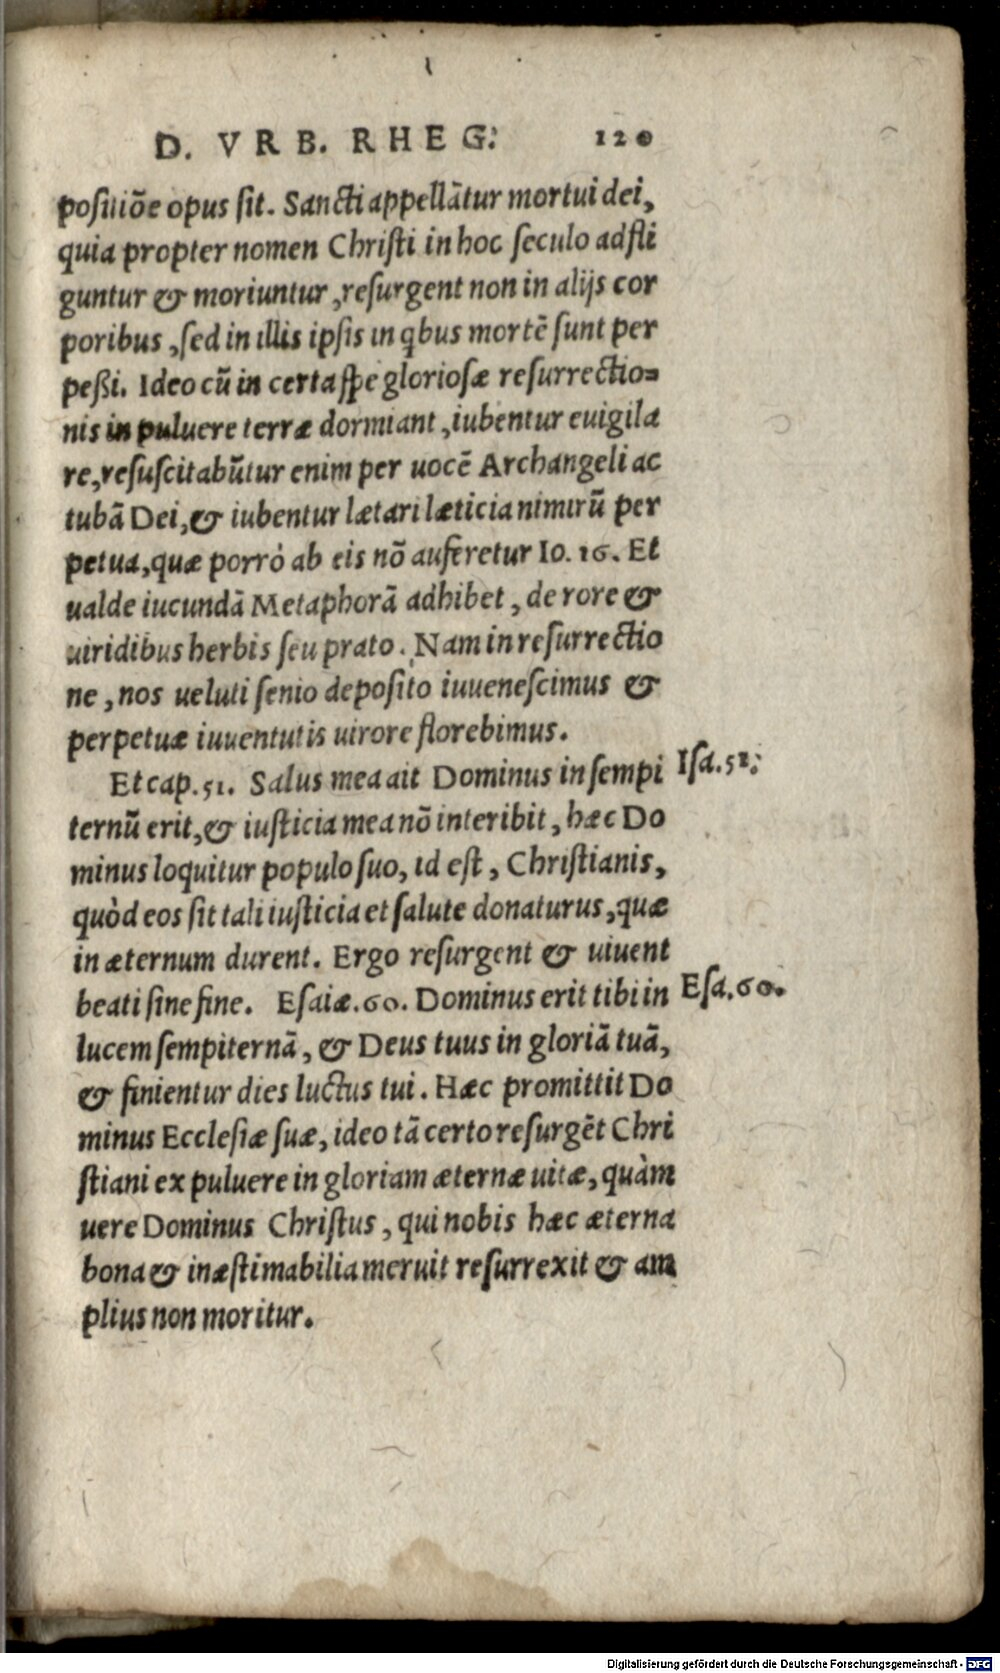 D. VRB. RHEG. 120
positiõe opus sit. Sancti appellãtur mortui dei,
quia propter nomen Christi in hoc seculo adfli
guntur & moriuntur, resurgent non in alijs cor
poribus, sed in illis ipsis in qbus mortẽ sunt per
peßi. Ideo cũ in certa spe gloriosæ resurrectio=
nis in puluere terræ dormiant, iubentur euigila
re, resuscitabũtur enim per uocẽ Archangeli ac
tubã Dei, & iubentur lætari læticia nimirũ per
petua, quæ porrò ab eis nõ auferetur Io. 16. Et
ualde iucundã Metaphorã adhibet, de rore &
uiridibus herbis seu prato. Nam in resurrectio
ne, nos ueluti senio deposito iuuenescimus &
perpetuæ iuuentutis uirore florebimus.
Et cap. 51. Salus mea ait Dominus in sempi Isa. 51.
ternũ erit, & iusticia mea nõ interibit, hæc Do
minus loquitur populo suo, id est, Christianis,
quòd eos sit tali iusticia et salute donaturus, quæ
in æternum durent. Ergo resurgent & uiuent
beati sine fine. Esaiæ. 60. Dominus erit tibi in Esa. 60.
lucem sempiternã, & Deus tuus in gloriã tuã,
& finientur dies luctus tui. Hæc promittit Do
minus Ecclesiæ suæ, ideo tã certo resurgẽt Chri
stiani ex puluere in gloriam æternæ uitæ, quàm
uere Dominus Christus, qui nobis hæc æterna
bona & inæstimabilia meruit resurrexit & am
plius non moritur.
Digitalisierung gefördert durch die Deutsche Forschungsgemeinschaft - DFG